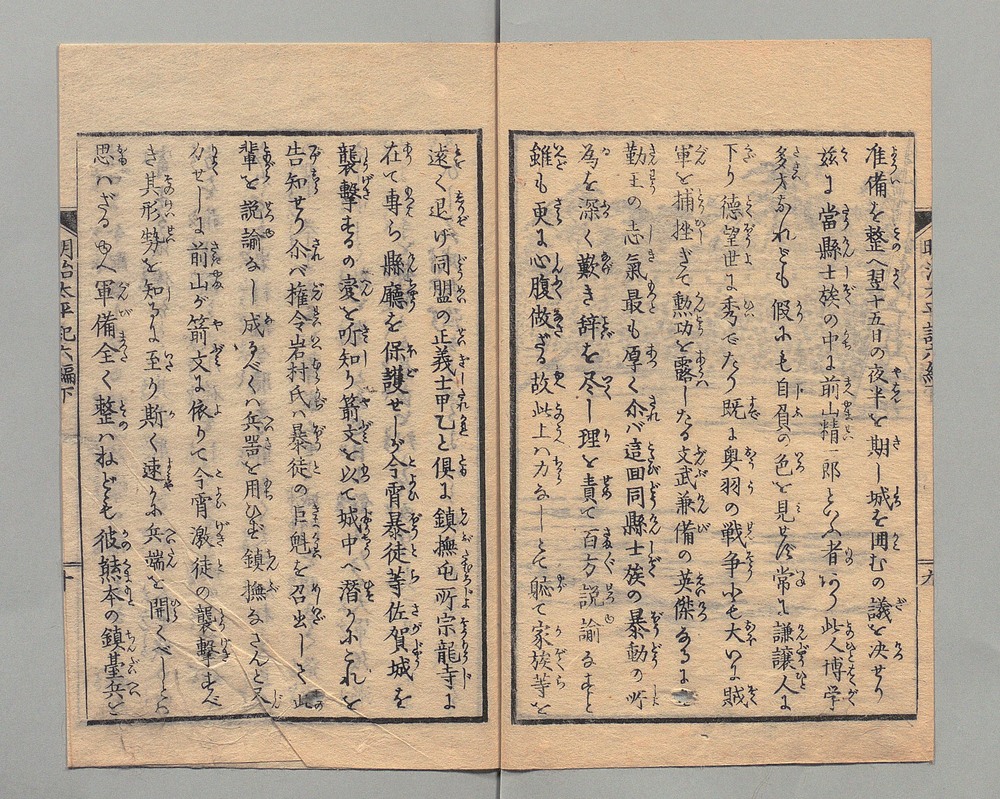 准備を整へ翌十五日の夜半を期し城を囲むの議を決せり
茲に當縣士族の中に前山精一郎といふ者あり此人博学
多才なれども假にも自負の色を見せず常に謙譲人に
下り徳望世に秀でたり既に奥羽の戦争にも大いに賊
軍を捕挫ぎて勲功を露したる文武兼備の英傑なるに
勤王の志氣最も厚く尒バ這回同縣士族の暴動の所
為を深く歎き辞を尽し理を責て百方説諭なすと
雖も更に心腹做ざる故此上ハ力なしとて軈て家族等を
遠く退け同盟の正義士甲乙と倶に鎮撫屯所宗龍寺に
在て専ら縣廳を保護せしが今宵暴徒等佐賀城を
襲撃するの変を听知り箭文を以て城中へ潜かにこれを
告知せり尒バ権令岩村氏ハ暴徒の巨魁を召出しさて此
輩を説諭なし成るべくハ兵器を用ひず鎮撫なさんと又
力せしに前山が箭文に依りて今宵激徒の襲撃すべ
き其形勢を知るに至り斯く速かに兵端を開くべしとハ
思ハざるゆへ軍備全く整ハねども彼熊本の鎮臺兵を
明治太平記六編下
九
明治太平記六編下
十